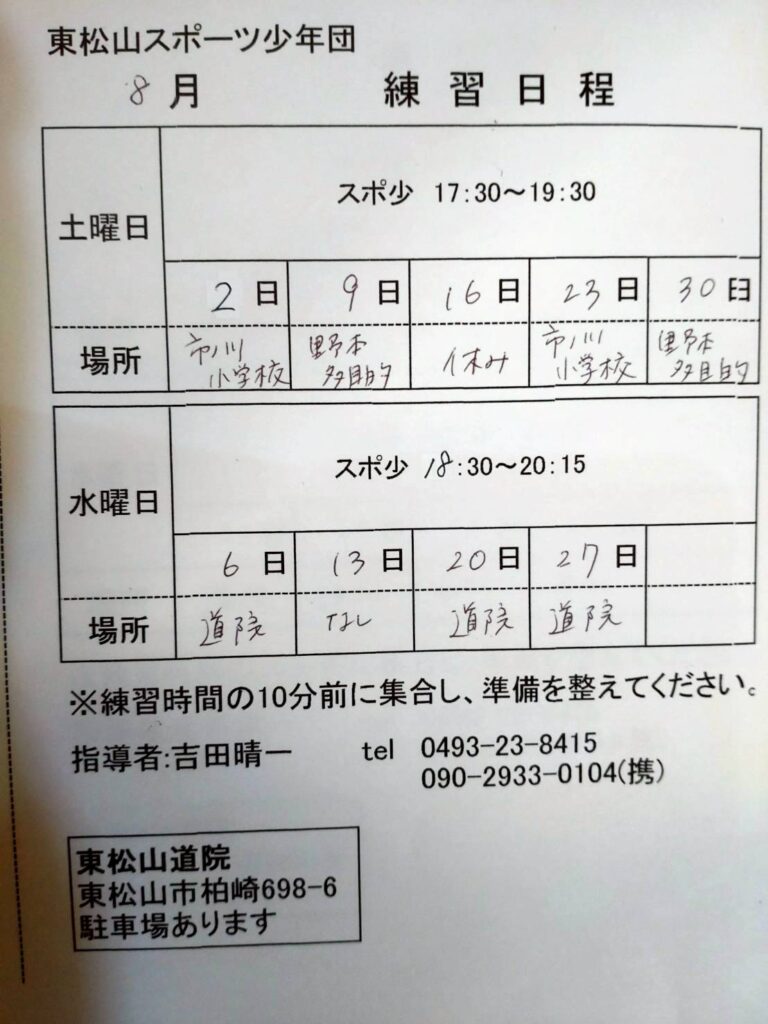 東松山スポーツ少年団
8月 練習日程
土曜日
スポ少 17:30～19:30
2日 9日 16日 23日 30日
場所
市ノ川小学校 野本多目的 休み 市ノ川小学校 野本多目的
水曜日
スポ少 18:30～20:15
6日 13日 20日 27日
場所 道院 なし 道院 道院
※練習時間の10分前に集合し、準備を整えてください。
指導者:吉田晴一 tel 0493-23-8415
090-2933-0104(携)
東松山道院
東松山市柏崎698-6
駐車場あります